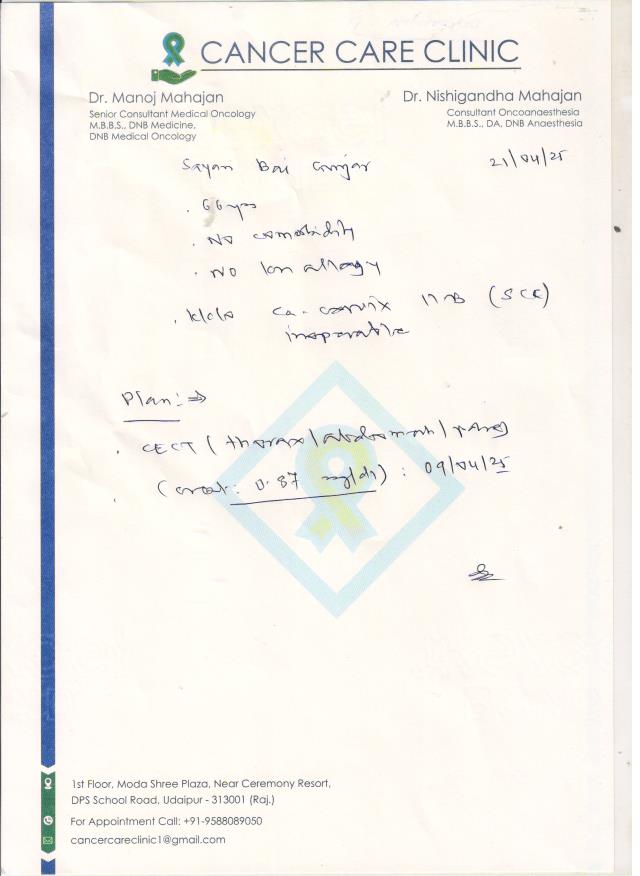 CANCER CARE CLINIC
Dr. Manoj Mahajan
Senior Consultant Medical Oncology
M.B.B.S., DNB Medicine,
DNB Medical Oncology
Dr. Nishigandha Mahajan
Consultant Oncoanaesthesia
M.B.B.S., DA, DNB Anaesthesia
Bai Gurjar 21/04/25
. 66 yrs
. No comorbidity
. No kn allergy
. k/c/o Ca-cervix IIB (SCC)
inoperable
Plan:⇒
. CECT (thorax/abdomen/pelvis)
. (creat: 0.87 mg/dl) : 09/04/25
1st Floor, Moda Shree Plaza, Near Ceremony Resort,
DPS School Road, Udaipur - 313001 (Raj.)
For Appointment Call: +91-9588089050
cancercareclinic1@gmail.com